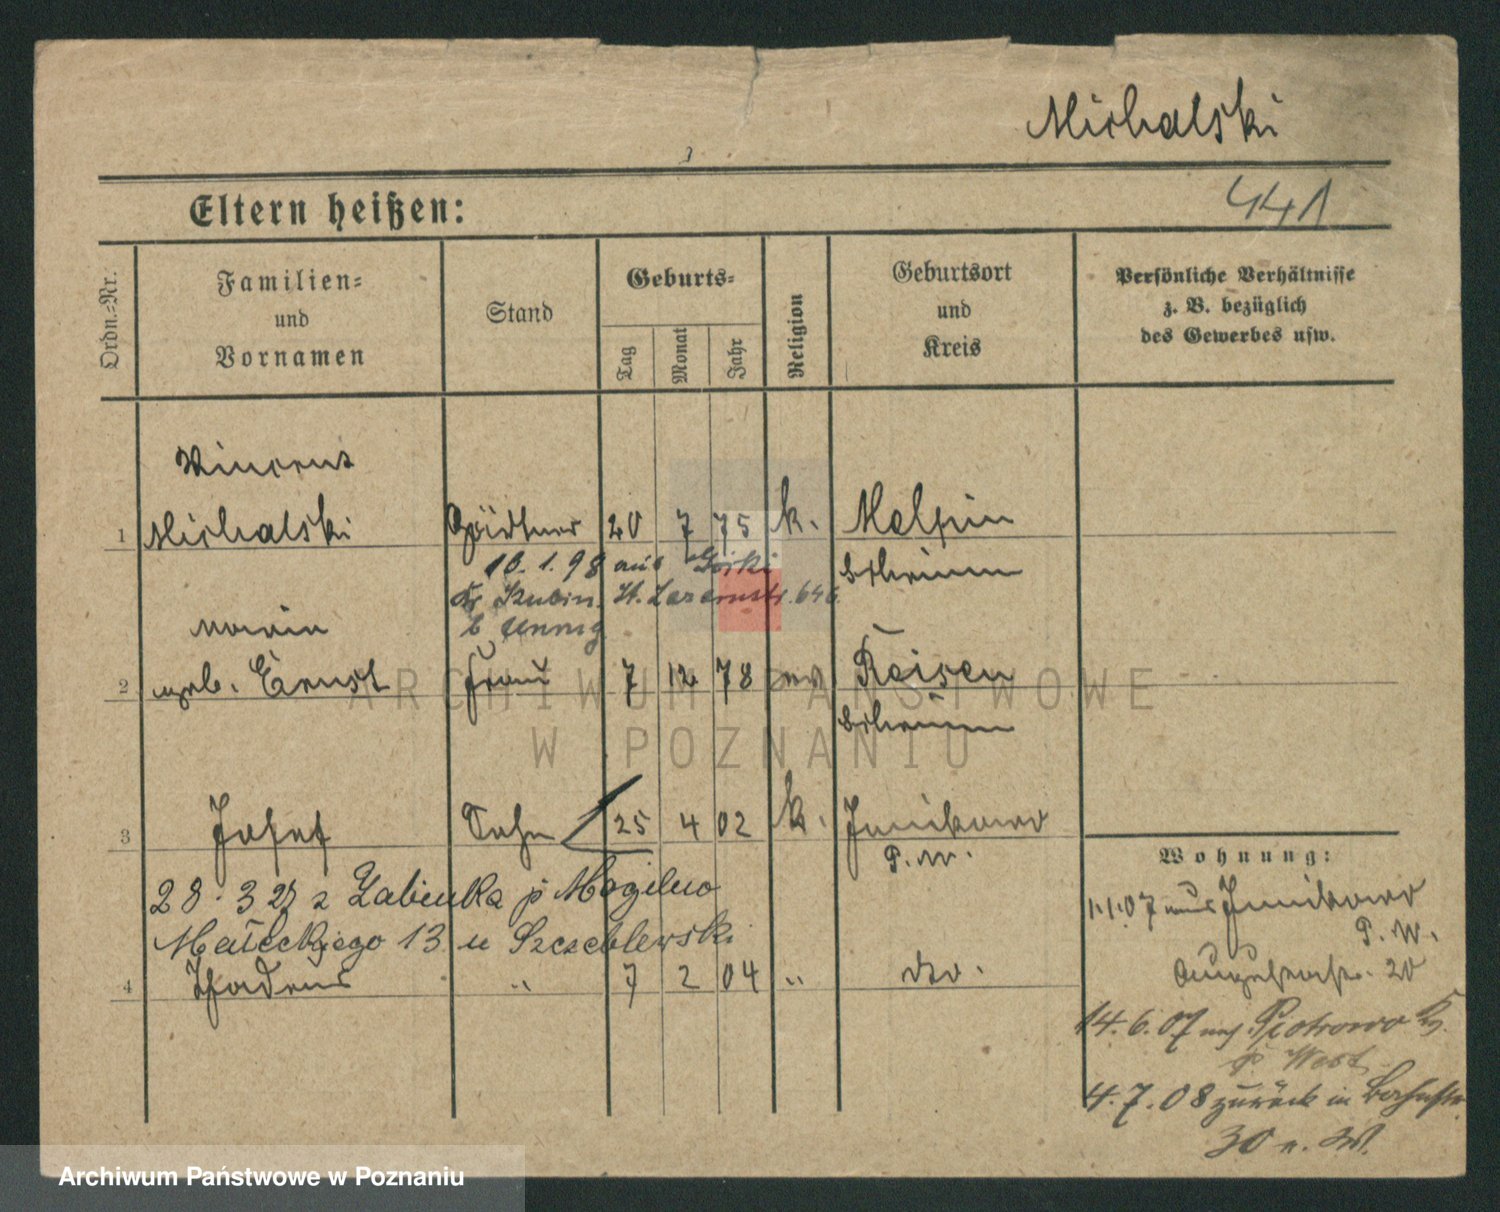 Michalski
Eltern heißen:
441
Ordn.-Nr.
Familien-
und
Vornamen
Stand
Geburts-
Tag
Monat
Jahr
Religion
Geburtsort
und
Kreis
Persönliche Verhältnisse
z. B. bezüglich
des Gewerbes usw.
Vincent
1 Michalski Gärtner 20 7 75 k. Melpin
10. 1. 98 aus Górki Schrimm
Kr. Szubin. St. Lazarustr. 64
b
Maria
2 geb. Ernst Frau 7 12 78 ev Reisen
Schrimm
3 Josef Sohn 25 4 02 k. Junikowo
P. W.
28. 3 27 z Żabienka p Mogilno
Małeckiego 13 u Szczeblewski
4 Thadeus " 7 2 04 " do.
Wohnung:
1.1.07 aus Junikowo
P. W.
Augustastr. 20
14.6.07 nach Piotrowo
P. West
4.7.08 zurück in
30 n. W.
ARCHIWUM PAŃSTWOWE
W POZNANIU
Archiwum Państwowe w Poznaniu